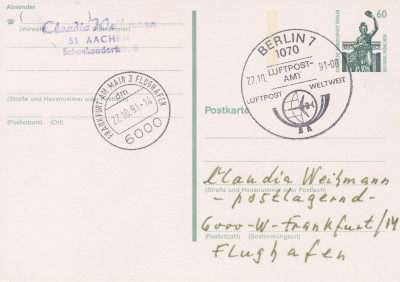 Absender
Claudia Weihmann
(Vorwahl)
51 AACHEN
(Straße und Hausnummer oder Postfach)
(Postleitzahl) (Ort)
FRANKFURT AM MAIN 3 FLUGHAFEN
dm
22.10.91-14
6000
BERLIN 7
1070
22.10. LUFTPOST- 91-00
AMT
LUFTPOST WELTWEIT
60
Postkarte
Claudia Weihmann
(Straße und Hausnummer oder Postfach)
- postlagernd -
6000-W-Frankfurt/M
(Postleitzahl) (Bestimmungsort)
Flughafen